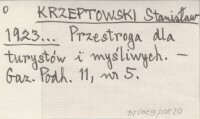 o
KRZEPTOWSKI Stanisław
1923... Przestroga dla
turystów i myśliwych. —
Gaz. Podh. 11, nr 5.